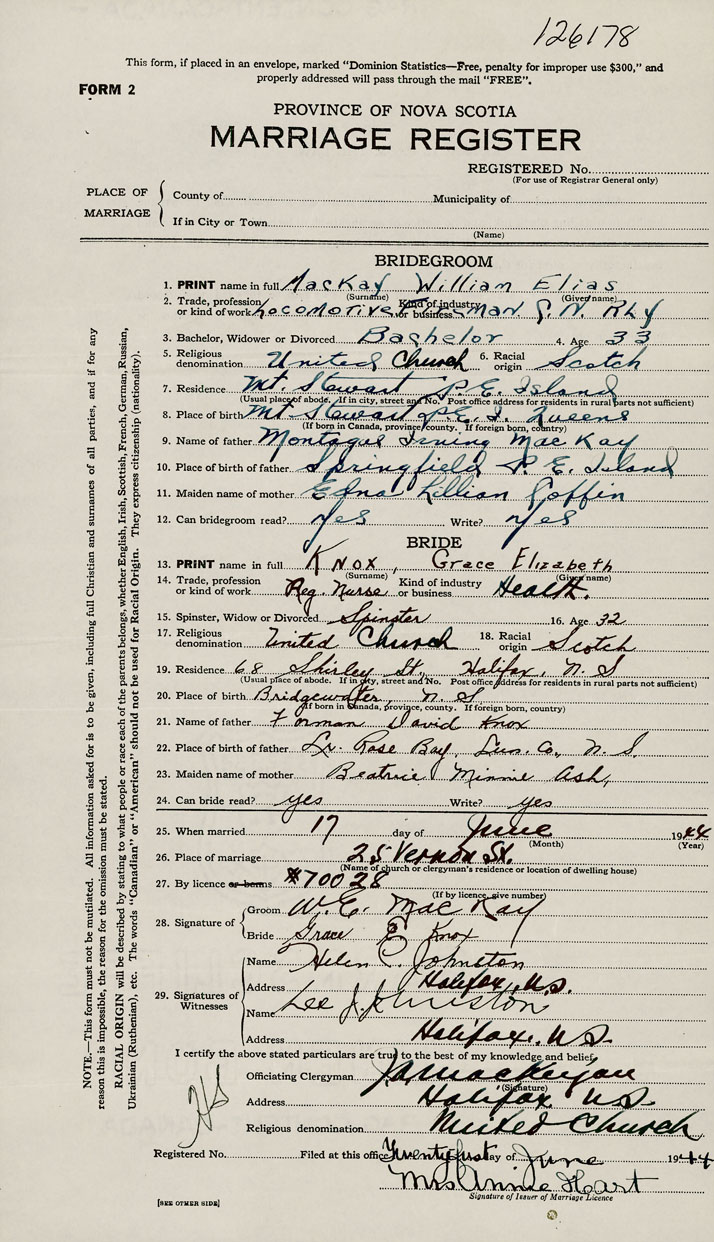 126178
This form, if placed in an envelope, marked "Dominion Statistics—Free, penalty for improper use $300," and
properly addressed will pass through the mail "FREE".
FORM 2
PROVINCE OF NOVA SCOTIA
MARRIAGE REGISTER
REGISTERED No.
(For use of Registrar General only)
PLACE OF MARRIAGE
County of Municipality of
If in City or Town
(Name)
BRIDEGROOM
1. PRINT name in full MacKay William Elias
(Surname) (Given name)
2. Trade, profession or kind of work Locomotive Kind of industry or business man C. N. Rly
3. Bachelor, Widower or Divorced Bachelor 4. Age 33
5. Religious denomination United Church 6. Racial origin Scotch
7. Residence Mt. Stewart P.E. Island
(Usual place of abode. If in city, street and No. Post office address for residents in rural parts not sufficient)
8. Place of birth Mt. Stewart P.E. I. Queens
(If born in Canada, province, county. If foreign born, country)
9. Name of father Montague Irving MacKay
10. Place of birth of father Springfield P. E. Island
11. Maiden name of mother Edna Lillian Coffin
12. Can bridegroom read? Yes Write? Yes
BRIDE
13. PRINT name in full Knox, Grace Elizabeth
(Surname) (Given name)
14. Trade, profession or kind of work Reg. Nurse Kind of industry or business Health.
15. Spinster, Widow or Divorced Spinster 16. Age 32
17. Religious denomination United Church 18. Racial origin Scotch
19. Residence 68 Shirley St., Halifax, N. S
(Usual place of abode. If in city, street and No. Post office address for residents in rural parts not sufficient)
20. Place of birth Bridgewater, N. S.
(If born in Canada, province, county. If foreign born, country)
21. Name of father Forman David Knox
22. Place of birth of father Lr. Rose Bay, Lun. Co., N. S.
23. Maiden name of mother Beatrice Minnie Ash,
24. Can bride read? yes Write? yes
25. When married 17 day of June 1944
(Month) (Year)
26. Place of marriage 25 Vernon St.
(Name of church or clergyman's residence or location of dwelling house)
27. By licence or banns #70028
(If by licence, give number)
28. Signature of
Groom W. E. MacKay
Bride Grace E Knox
29. Signatures of Witnesses
Name Helen C. Johnston
Address Halifax, N.S.
Name Lee J. Johnston
Address Halifax, N.S.
I certify the above stated particulars are true to the best of my knowledge and belief.
Officiating Clergyman
(Signature)
Address Halifax N.S.
Religious denomination United Church
Registered No. Filed at this office Twenty first day of June 1944
Mrs Annie Hart
Signature of Issuer of Marriage Licence
[SEE OTHER SIDE]
NOTE.—This form must not be mutilated. All information asked for is to be given, including full Christian and surnames of all parties, and if for any
reason this is impossible, the reason for the omission must be stated.
RACIAL ORIGIN will be described by stating to what people or race each of the parents belongs, whether English, Irish, Scottish, French, German, Russian,
Ukrainian (Ruthenian), etc. The words "Canadian" or "American" should not be used for Racial Origin. They express citizenship (nationality).